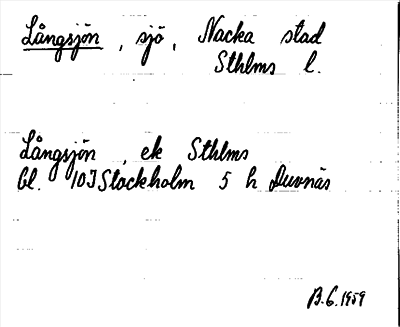 Långsjön, sjö, Nacka stad
Sthlms l.
Långsjön, ek Sthlms
bl. 10I Stockholm 5 h Duvnäs
B.G. 1959